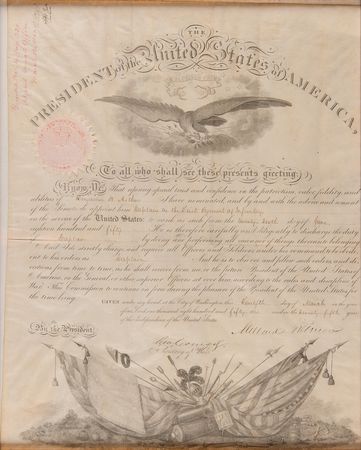 THE
PRESIDENT of the United States of AMERICA,
To all who shall see these presents greeting:
Know Ye, That reposing special trust and confidence in the patriotism, valor, fidelity, and
abilities of I have nominated, and by and with the advice and consent
of the Senate, do appoint him Captain in the Regiment of Infantry
in the service of the United States: to rank as such from the day of June
eighteen hundred and fifty He is therefore carefully and diligently to discharge the duty
of Captain by doing and performing all manner of things thereunto belonging.
And I do strictly charge, and require all Officers and Soldiers under his command to be obedi-
ent to his orders as Captain And he is to observe and follow such orders, and di-
rections, from time to time, as he shall receive from me, or the future President of the United States of
America, or the General or other superior Officers set over him, according to the rules and discipline of
War. This Commission to continue in force during the pleasure of the President of the United States, for
the time being.
GIVEN under my hand at the City of Washington, this twelfth day of March in the year
of our Lord, one thousand eight hundred and fifty one and in the seventy fifth year
of the Independence of the United States.
By the President,
Millard Fillmore
Secretary of War.